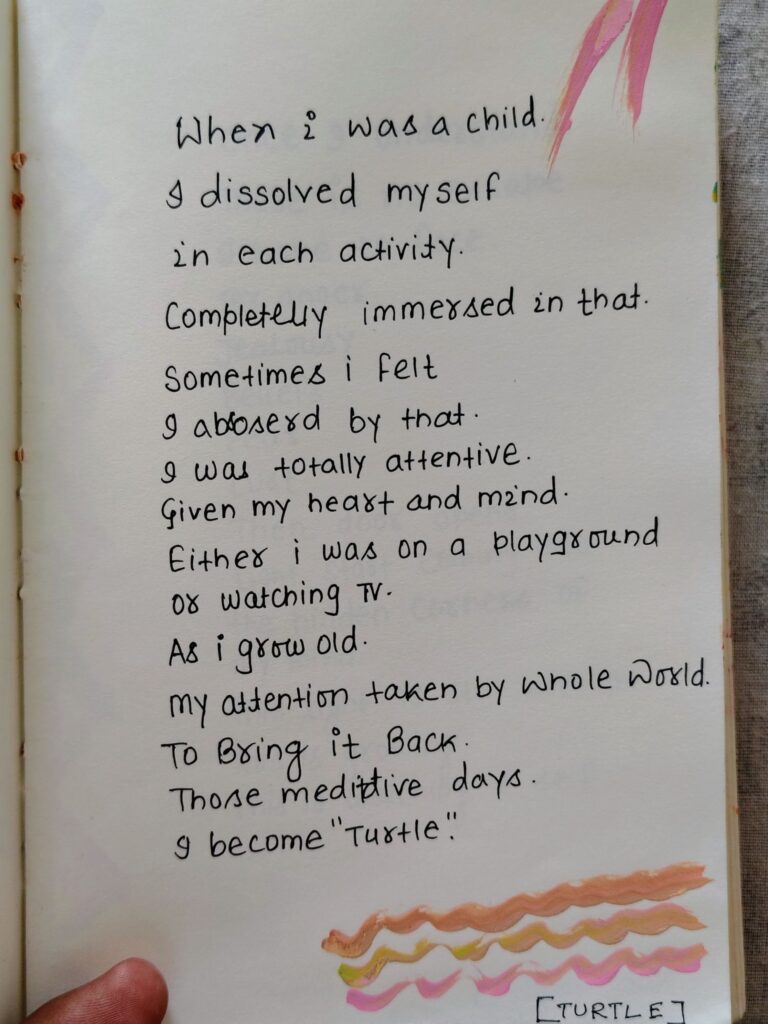 When i was a child.
I dissolved myself
in each activity.
Completelly immersed in that.
Sometimes i felt
I aboserd by that.
I was totally attentive.
Given my heart and mind.
Either i was on a playground
or watching TV.
As i grow old.
My attention taken by whole world.
To Bring it Back.
Those meditative days.
I become "Turtle".
[TURTLE]